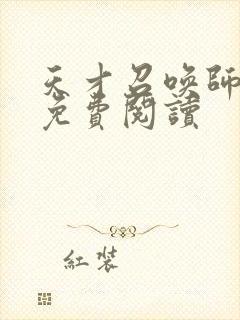 天才召喚師
免費閱讀
紅裝